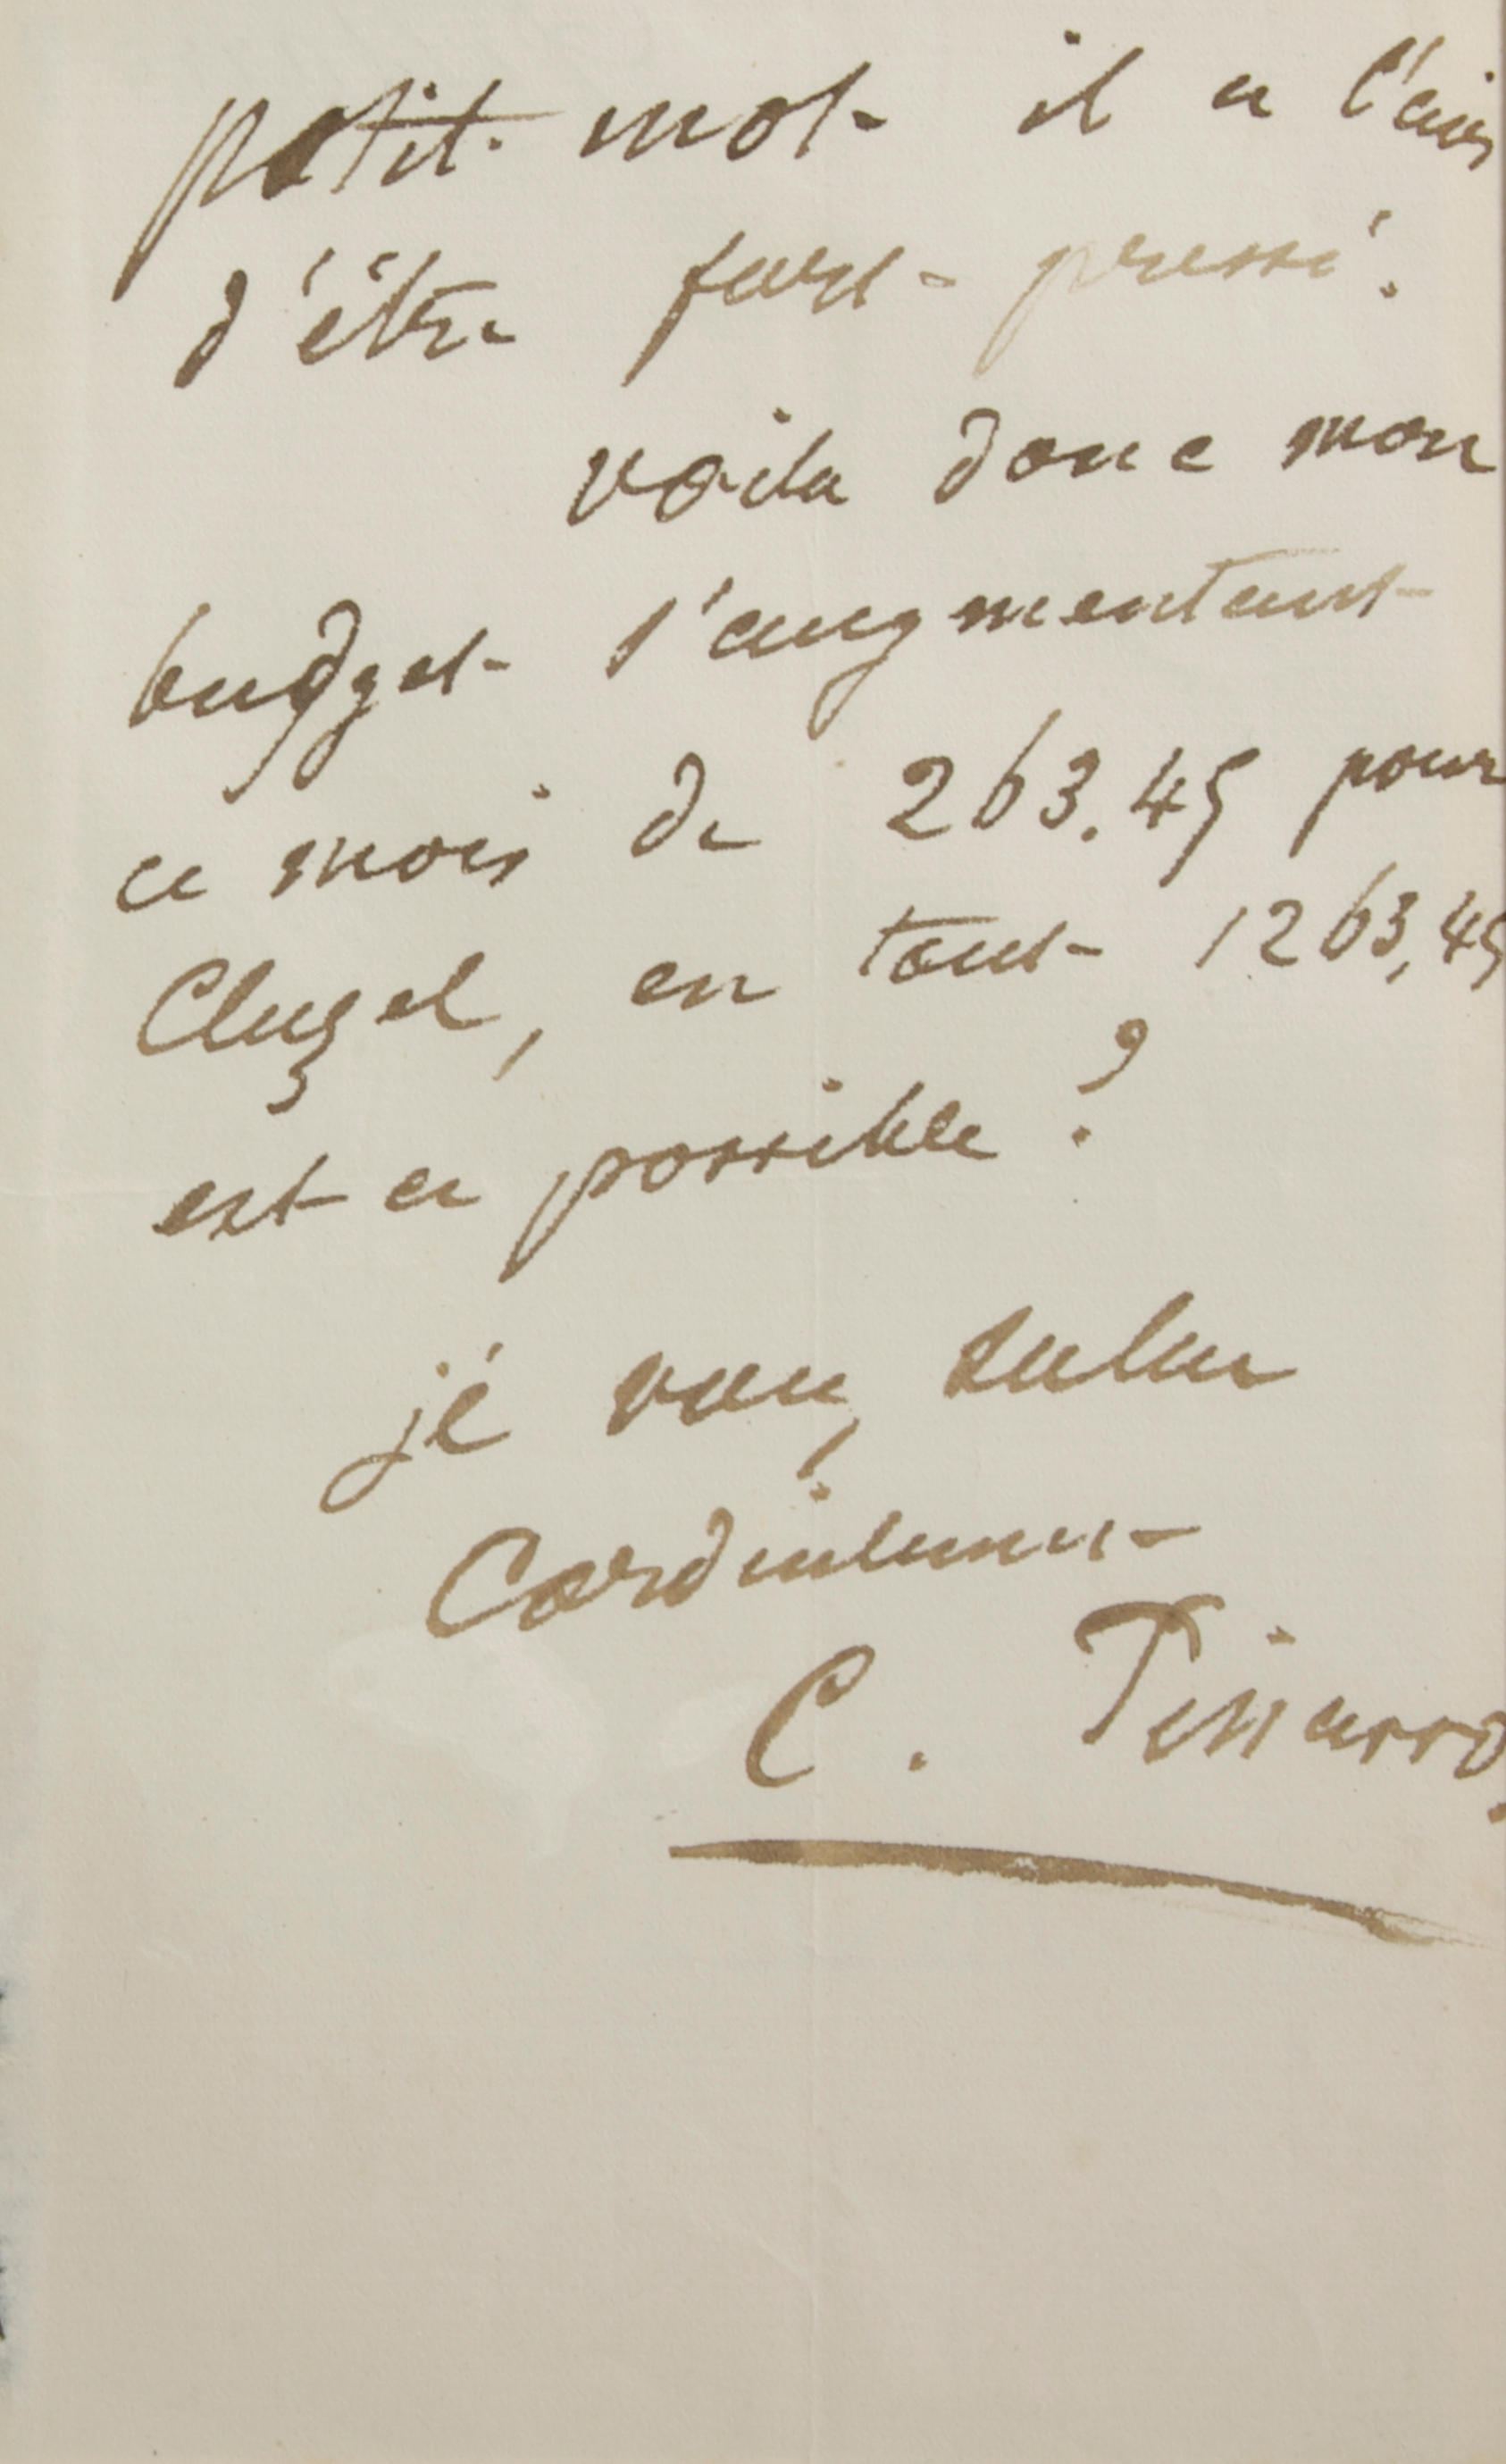 petit mot il a l'air
d'être fort pressé.
voila donc mon
budget s'augmentant
ce mois de 263.45 pour
Cluzel, en tout 1263,45
est ce possible ?
je vous salue
Cordialement
C. Pissarro